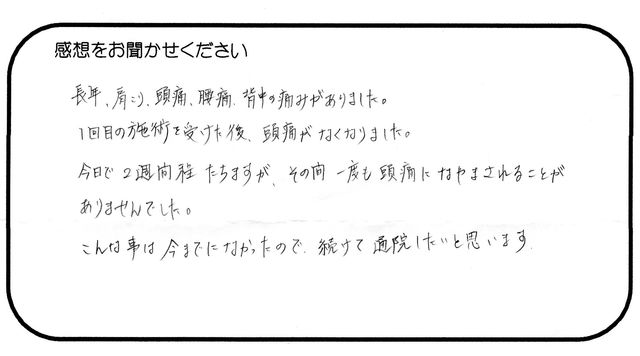 感想をお聞かせください
長年、肩こり、頭痛、腰痛、背中の痛みがありました。
1回目の施術を受けた後、頭痛がなくなりました。
今日で2週間程たちますが、その間一度も頭痛になやまされることが
ありませんでした。
こんな事は今までになかったので、続けて通院したいと思います